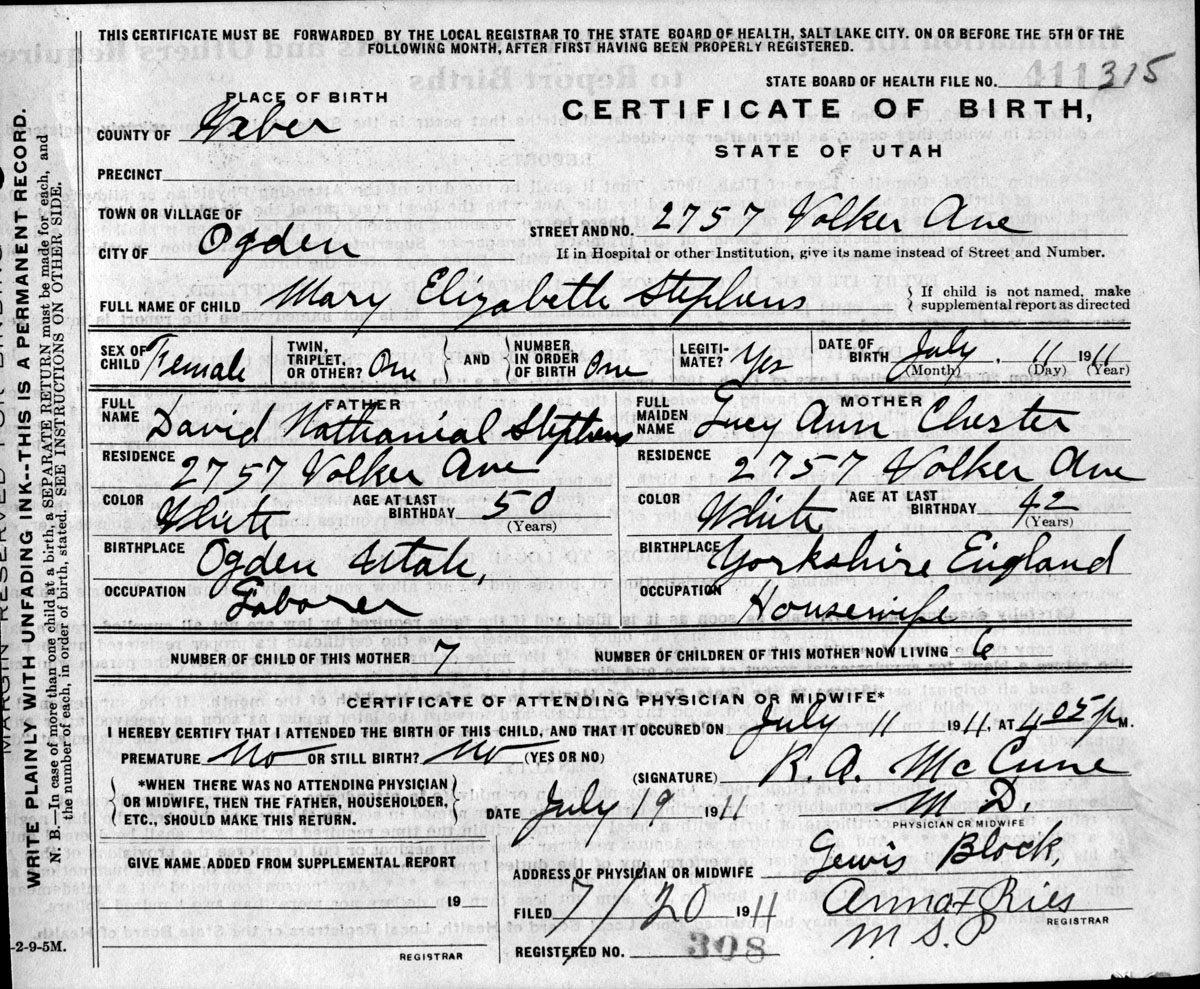 THIS CERTIFICATE MUST BE FORWARDED BY THE LOCAL REGISTRAR TO THE STATE BOARD OF HEALTH, SALT LAKE CITY. ON OR BEFORE THE 5TH OF THE
FOLLOWING MONTH, AFTER FIRST HAVING BEEN PROPERLY REGISTERED.
STATE BOARD OF HEALTH FILE NO. 411315
PLACE OF BIRTH
CERTIFICATE OF BIRTH,
COUNTY OF Weber
STATE OF UTAH
PRECINCT
TOWN OR VILLAGE OF
STREET AND NO. 2757 Volker Ave
CITY OF Ogden
If in Hospital or other Institution, give its name instead of Street and Number.
FULL NAME OF CHILD Mary Elizabeth Stephens
{ If child is not named, make
supplemental report as directed
SEX OF CHILD Female
TWIN, TRIPLET OR OTHER? One } AND { NUMBER IN ORDER OF BIRTH One
LEGITIMATE? Yes
DATE OF BIRTH July 11 1911
(Month) (Day) (Year)
FATHER
FULL NAME David Nathanial Stephens
RESIDENCE 2757 Volker Ave
COLOR White AGE AT LAST BIRTHDAY 50
(Years)
BIRTHPLACE Ogden Utah,
OCCUPATION Laborer
MOTHER
FULL MAIDEN NAME Lucy Ann Chester
RESIDENCE 2757 Volker Ave
COLOR White AGE AT LAST BIRTHDAY 42
(Years)
BIRTHPLACE Yorkshire England
OCCUPATION Housewife
NUMBER OF CHILD OF THIS MOTHER 7 NUMBER OF CHILDREN OF THIS MOTHER NOW LIVING 6
CERTIFICATE OF ATTENDING PHYSICIAN OR MIDWIFE*
I HEREBY CERTIFY THAT I ATTENDED THE BIRTH OF THIS CHILD, AND THAT IT OCCURED ON July 11 1911, AT 4 05 P M.
PREMATURE No OR STILL BIRTH? No (YES OR NO)
(SIGNATURE) R. A. McCune
{ *WHEN THERE WAS NO ATTENDING PHYSICIAN
OR MIDWIFE, THEN THE FATHER, HOUSEHOLDER,
ETC., SHOULD MAKE THIS RETURN. }
DATE July 19 1911
M D.
PHYSICIAN OR MIDWIFE
GIVE NAME ADDED FROM SUPPLEMENTAL REPORT
19
REGISTRAR
ADDRESS OF PHYSICIAN OR MIDWIFE Lewis Block,
FILED 7/20 1911 Anna F Ries
REGISTRAR
REGISTERED NO. 308
2-9-5M.
MARGIN RESERVED FOR BINDING
WRITE PLAINLY WITH UNFADING INK--THIS IS A PERMANENT RECORD.
N. B.—In case of more than one child at a birth, a SEPARATE RETURN must be made for each, and
the number of each, in order of birth, stated. SEE INSTRUCTIONS ON OTHER SIDE.